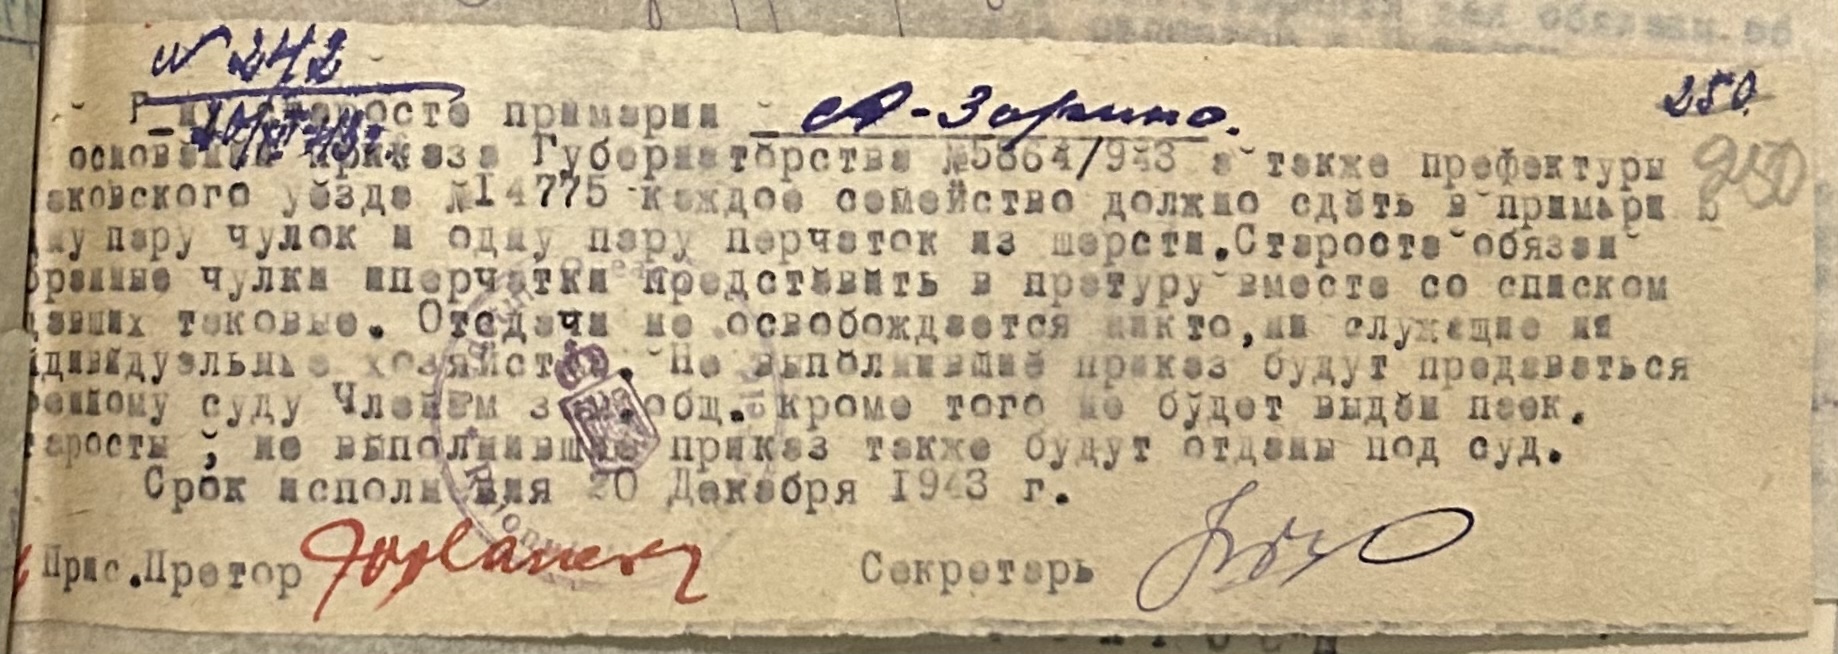 N 242
Г-ну Старосте примарии А-Зарино.
250.
250
основании приказа Губернаторства №5864/943 а также префектуры
аковского уезде №14775 каждое семейство должно сдать в примари ю
ну пару чулок и одну пару перчаток из шерсти.Староста обязан
бранные чулки иперчатки представить в претуру вместе со списком
давших таковые. Отсдачи не освобождается никто,ни служащие ни
ндивидуальные хозяйства. Не выполнившие приказ будут предаваться
енному суду Членам з общ. кроме того не будет выдан паек.
таросты , не выполнившие приказ также будут отданы под суд.
Срок исполнения 20 Декабря 1943 г.
Прис.Претор
Секретарь